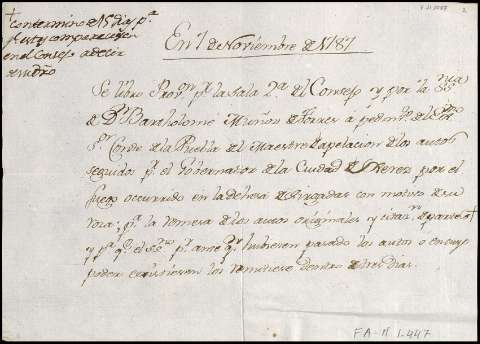 +
Con termino de 15 dias pª
q.e se comparecen
en el Consejo a decir
de su dro
En 7 de Noviembre de 1787
Se libro Prov.n p.r la Sala 2.ª del Consejo y por la Ess.nia
de D.n Bartholome Muñoz de Torres á pedim.to del
S.or Conde de la Puebla del Maestre en apelacion de los autos
seguidos p.r el Governador de la Ciudad de Xerez por el
fuego ocurrido en la dehesa de Brogadas con motivo de su
roza: p.ª la remesa de los autos originales y citac.n de partes +
y p.ª q.e el Ess.no p.r ante q.n hubiesen pasado los autos o en cuyo
poder existiesen los remitiese dentro de tres dias.
FA-M. 1-447